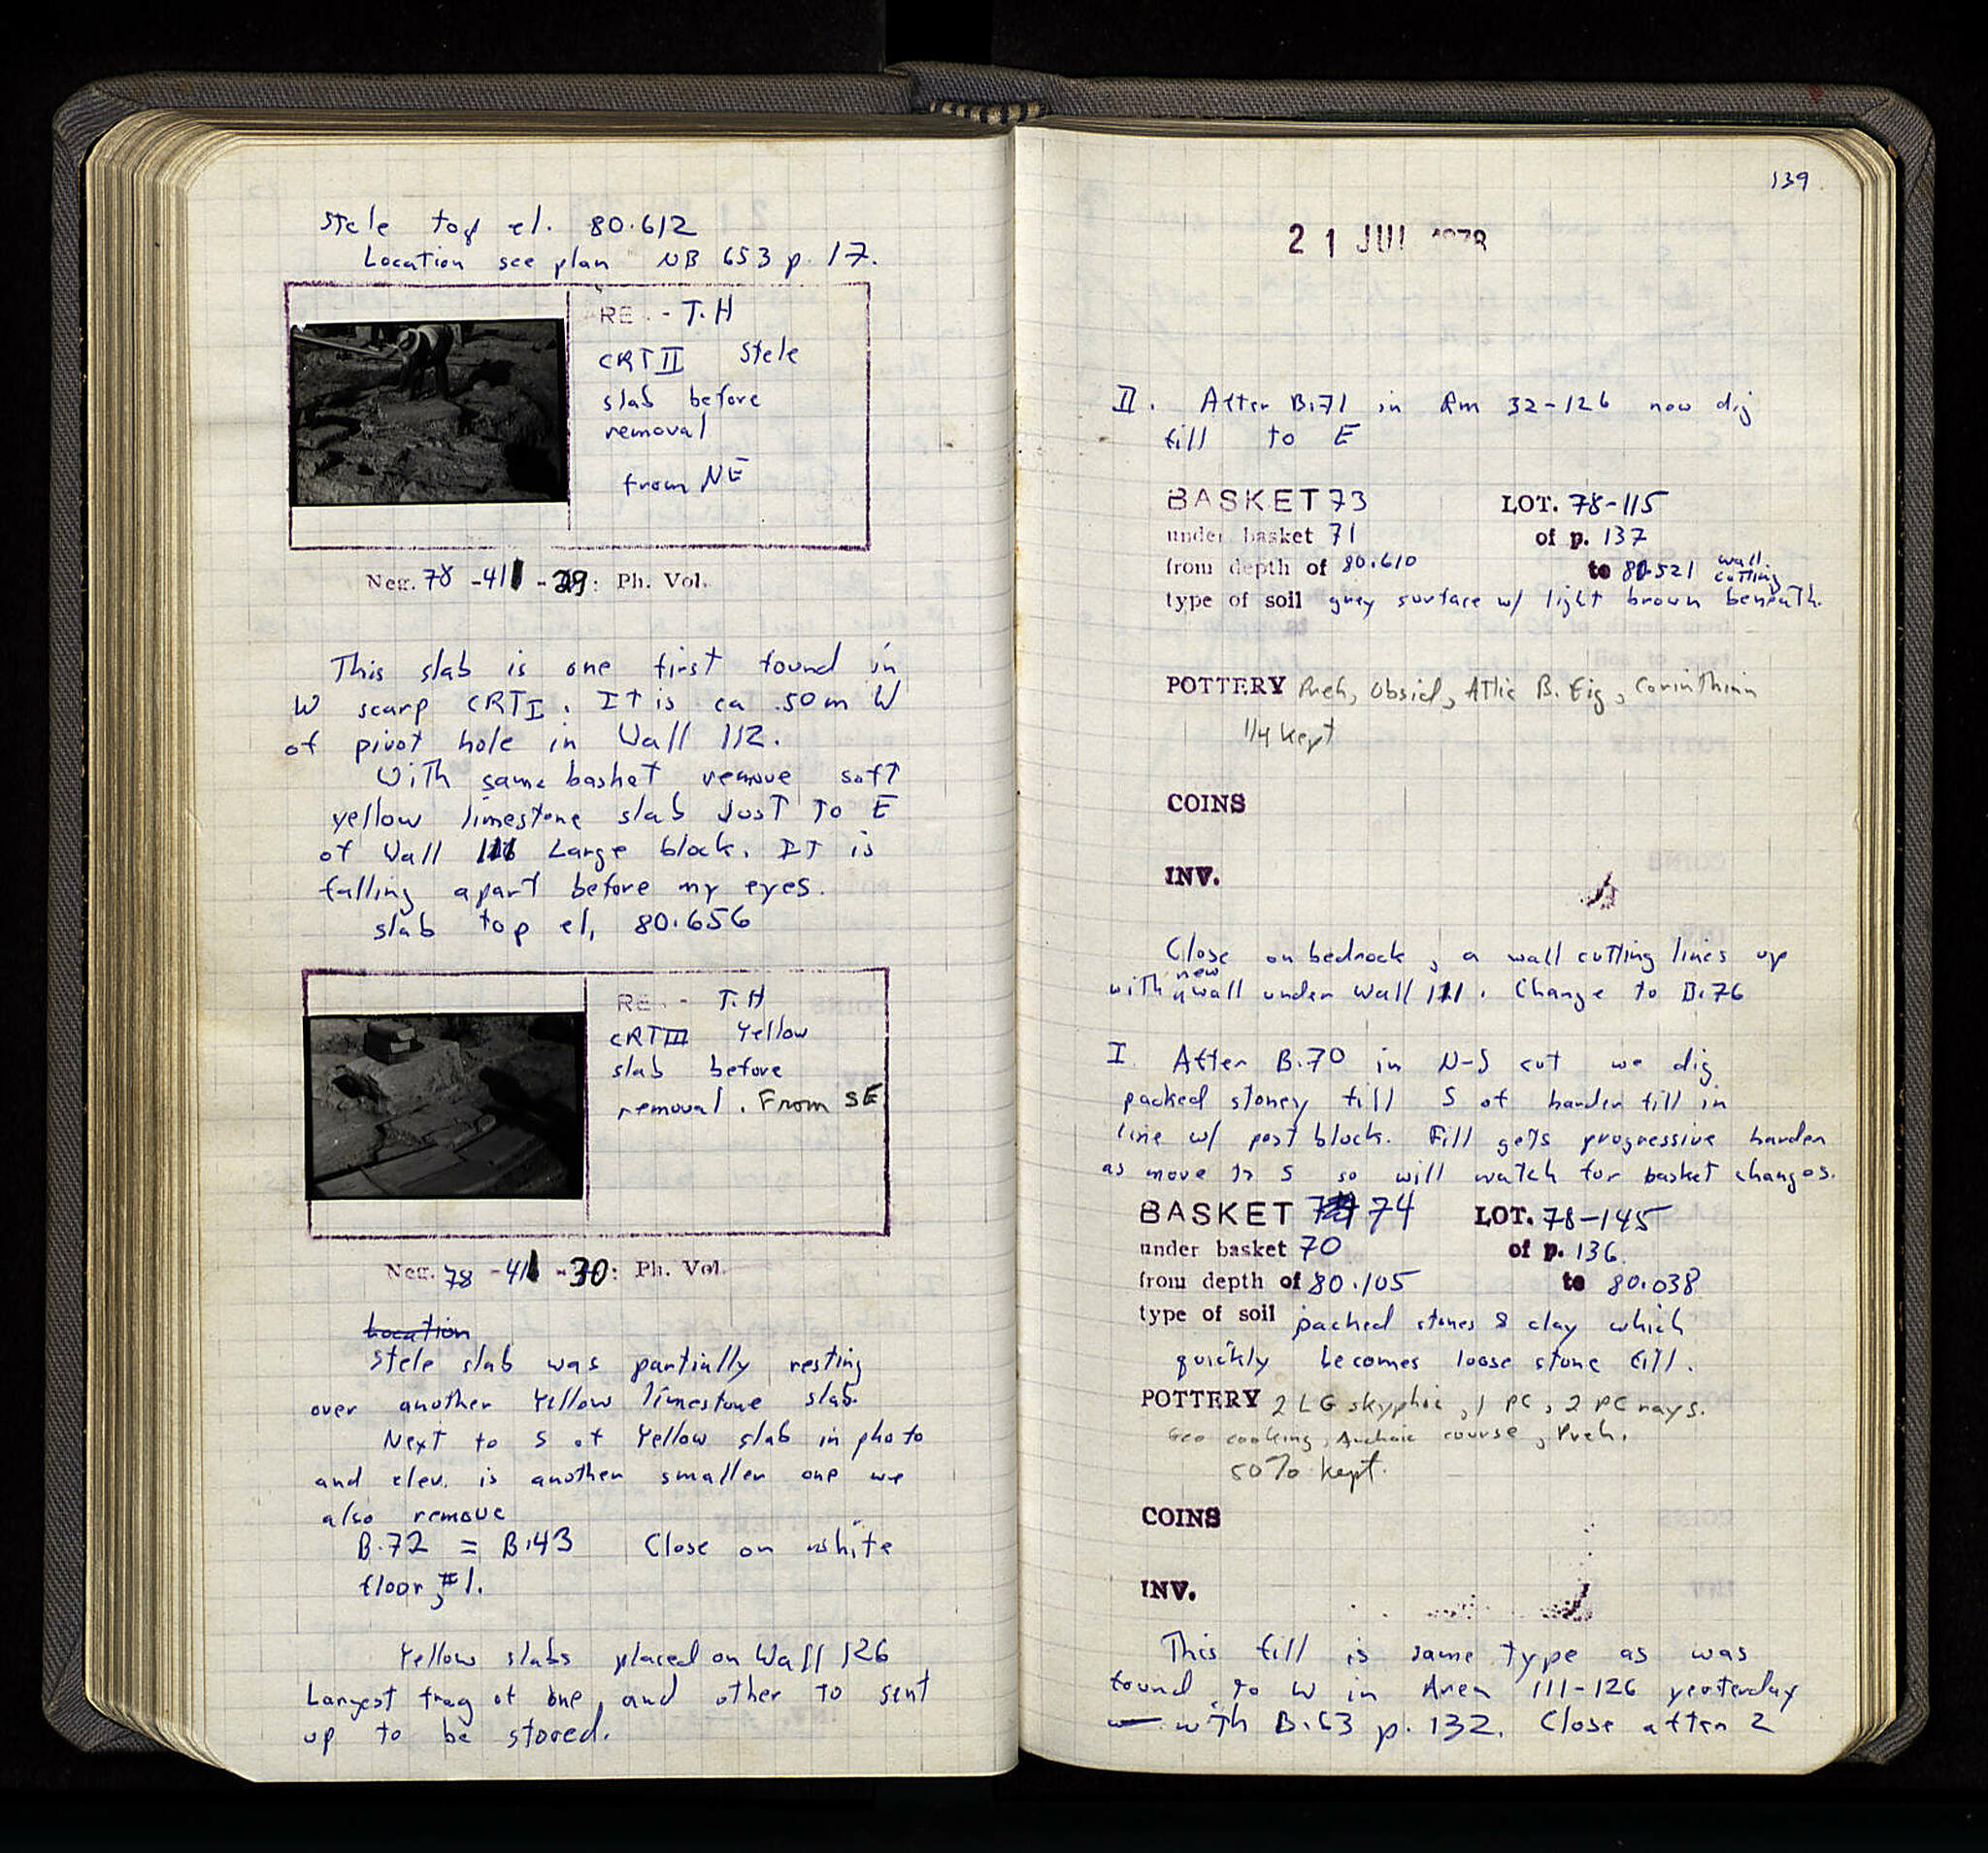 Stele top el. 80.612
Location see plan NB 653 p. 17.
RE - T.H
CRT II Stele
slab before
removal
from NE
Neg. 78 -41 - 29: Ph. Vol.
This slab is one first found in
W scarp CRT I. It is ca .50m W
of pivot hole in Wall 112.
With same basket remove soft
yellow limestone slab Just To E
of Wall Large block. IT is
falling apart before my eyes.
slab top el, 80.656
RE - T.H
CRT III Yellow
slab before
removal. From SE
Neg. 78 -41 -30: Ph. Vol.
Location
Stele slab was partially resting
over another Yellow limestone slab.
Next to S of Yellow slab in photo
and elev. is another smaller one we
also remove
B.72 = B.43 Close on white
floor, #1.
Yellow slabs placed on Wall 126
Largest frag of one, and other to sent
up to be stored.
139
21 JUL 1978
II. After B.71 in Rm 32-126 now dig
fill to E
BASKET 73 LOT. 78-115
under basket 71 of p. 137
from depth of 80.610 to 521 wall cutting
type of soil grey surface w/ light brown beneath.
POTTERY Preh, Obsid, Attic B. Fig, Corinthian
1/4 kept
COINS
INV.
Close on bedrock, a wall cutting lines up
with new wall under Wall 111. Change to B.76
I After B.70 in N-S cut we dig
packed stoney fill S of harder fill in
line w/ post block. Fill gets progressive harder
as move to S so will watch for basket changes.
BASKET 74 LOT. 78-145
under basket 70 of p. 136
from depth of 80.105 to 80.038
type of soil packed stones & clay which
quickly becomes loose stone fill.
POTTERY 2 LG skyphoi, 1 PC, 2 PC rays.
Geo cooking, Archaic course, Preh.
50% kept.
COINS
INV.
This fill is same type as was
found to W in Area 111-126 yesterday
with B.63 p. 132. Close after 2